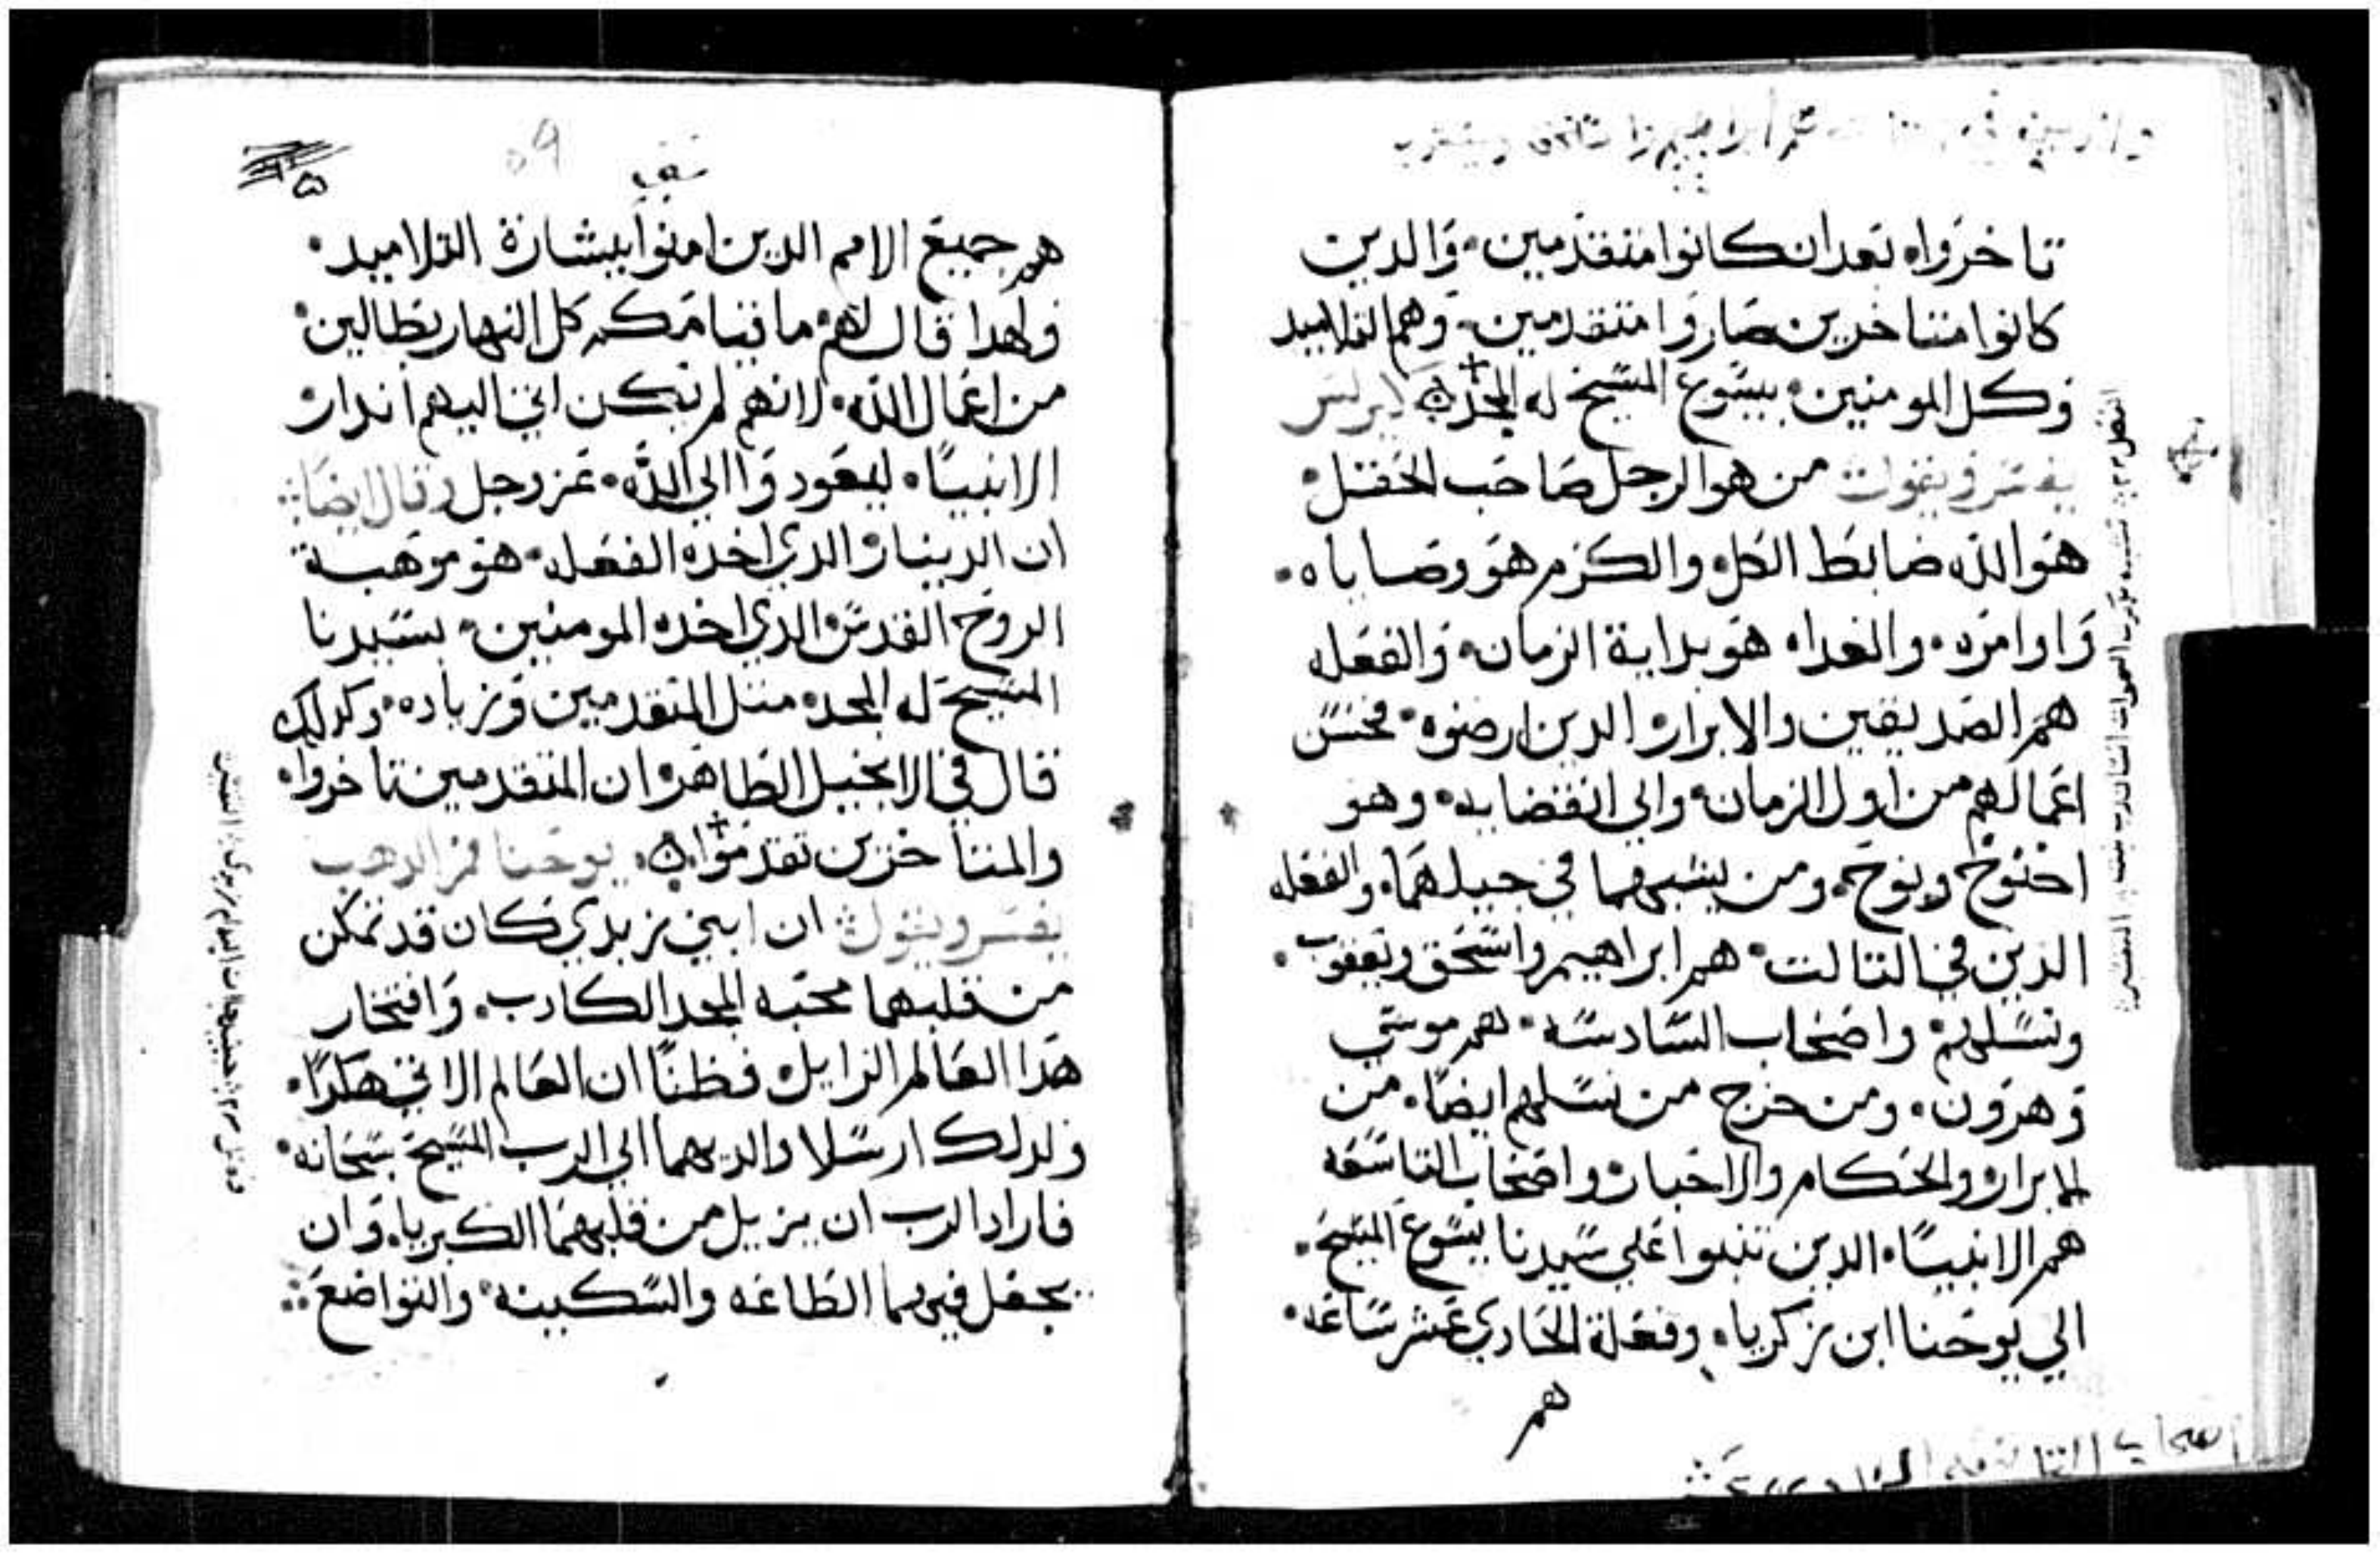 تاخروا، بعد ان كانوا متقدمين. والدين
كانوا متاخرين صاروا متقدمين. وهم التلاميد
وكل المومنين. بيسوع المسيح له المجد كيرلس
يفسر ويقول من هو الرجل صاحب الحقل.
هو الله ضابط الكل والكرم هو وصاياه.
واوامره. والغداه هو بداية الزمان. والفعله
هم الصديقين والابرار الدين ارضوه. بحسن
اعمالهم من اول الزمان والي انقضايه. وهو
اخنوخ ونوح. ومن يشبههما في جيلهما. والفعله
الذين في التالت. هم ابراهيم واسحق ويعقوب.
ونسلهم. واصحاب السادسه. هم موسي
وهرون. ومن خرج من نسلهم ايضا. من
الابرار والحكام والاحبار واصحاب التاسعه
هم الانبيا. الدين تنبوا علي سيدنا يسوع المسيح.
الي يوحنا ابن زكريا. وفعلة الحادي عشر ساعه.
هم
اصحاب
٥٩
هم جميع الامم الدين امنوا ببشارة التلاميد.
ولهدا قال لهم ما قيامكم كل النهار بطالين.
من اعمال الله. لانهم لم يكن اتي اليهم اندار
الانبيا. ليعودوا الي الله. عز وجل وقال ايضا
ان الدينار الدي اخده الفعله. هو موهبة
الروح القدس الدي اخده المومنين. بسيدنا
المسيح له المجد. متل المتقدمين وزياده. وكدلك
قال في الانجيل الطاهر ان المتقدمين تاخروا.
والمتاخرين تقدموا. يوحنا فم الدهب
يفسر ويقول ان ابني زبدي كان قد تمكن
من قلبهما محبة المجد الكادب. وافتخار
هدا العالم الزايل. فظنا ان العالم الاتي هكدا.
ولدلك ارسلا والديهما الي الرب المسيح سبحانه.
فاراد الرب ان يزيل من قلبهما الكبريا. وان
يجعل فيهما الطاعه والسكينه. والتواضع